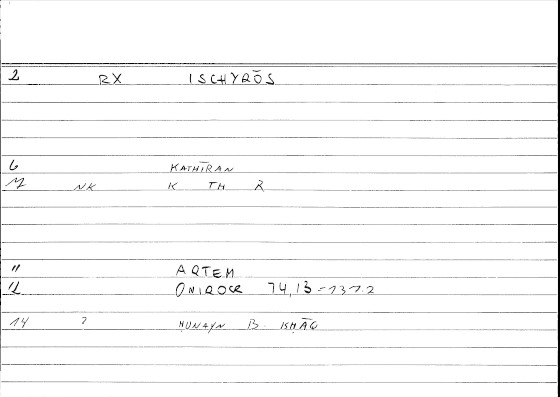 2 RX ISCHYRŌS
6 KATHĪRAN
7 NK K TH R
11 ARTEM
12 ONIROCR 74,13 = 131.2
14 ? ḤUNAYN B. ISḤĀQ